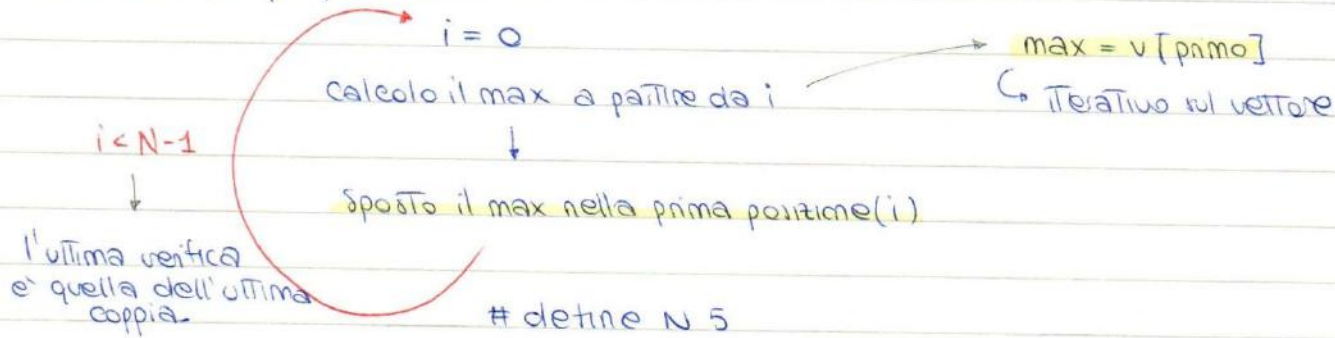 i = 0
max = v[primo]
calcolo il max a partire da i
iterativo sul vettore
i < N-1
sposto il max nella prima posizione (i)
l'ultima verifica
e' quella dell'ultima
coppia.
# define N 5